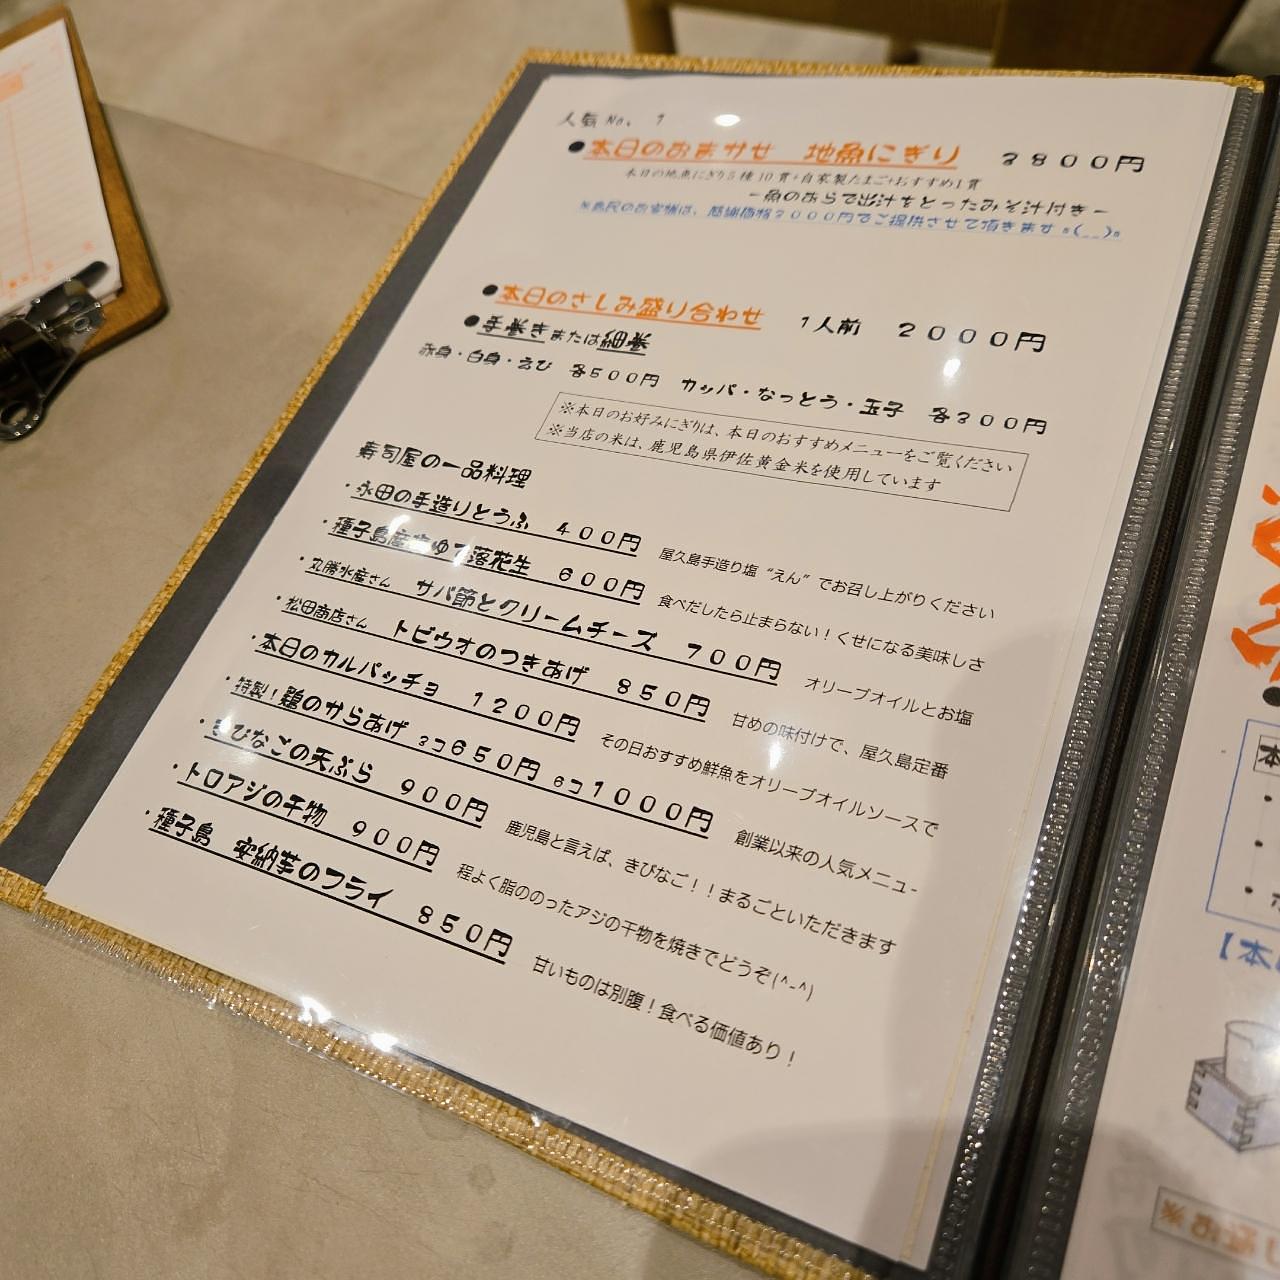 人気No. 1
●本日のおまかせ 地魚にぎり 3800円
本日の地魚にぎり5種10貫+自家製たまご+おすすめ1貫
-魚のあらで出汁をとったみそ汁付き-
※島民のお客様は、感謝価格3000円でご提供させて頂きますm(__)m
●本日のさしみ盛り合わせ 1人前 2000円
●手巻きまたは細巻
赤身・白身・えび 各500円 カッパ・なっとう・玉子 各300円
※本日のお好みにぎりは、本日のおすすめメニューをご覧ください
※当店の米は、鹿児島県伊佐黄金米を使用しています
寿司屋の一品料理
・永田の手造りとうふ 400円 屋久島手造り塩“えん”でお召し上がりください
・種子島産塩ゆで落花生 600円 食べだしたら止まらない!くせになる美味しさ
・丸勝水産さん サバ節とクリームチーズ 700円 オリーブオイルとお塩
・松田商店さん トビウオのつきあげ 850円 甘めの味付けで、屋久島定番
・本日のカルパッチョ 1200円 その日おすすめ鮮魚をオリーブオイルソースで
・特製!鶏のからあげ 3コ650円 6コ1000円 創業以来の人気メニュー
・きびなごの天ぷら 900円 鹿児島と言えば、きびなご!!まるごといただきます
・トロアジの干物 900円 程よく脂ののったアジの干物を焼きでどうぞ(^-^)
・種子島 安納芋のフライ 850円 甘いものは別腹!食べる価値あり!
【本